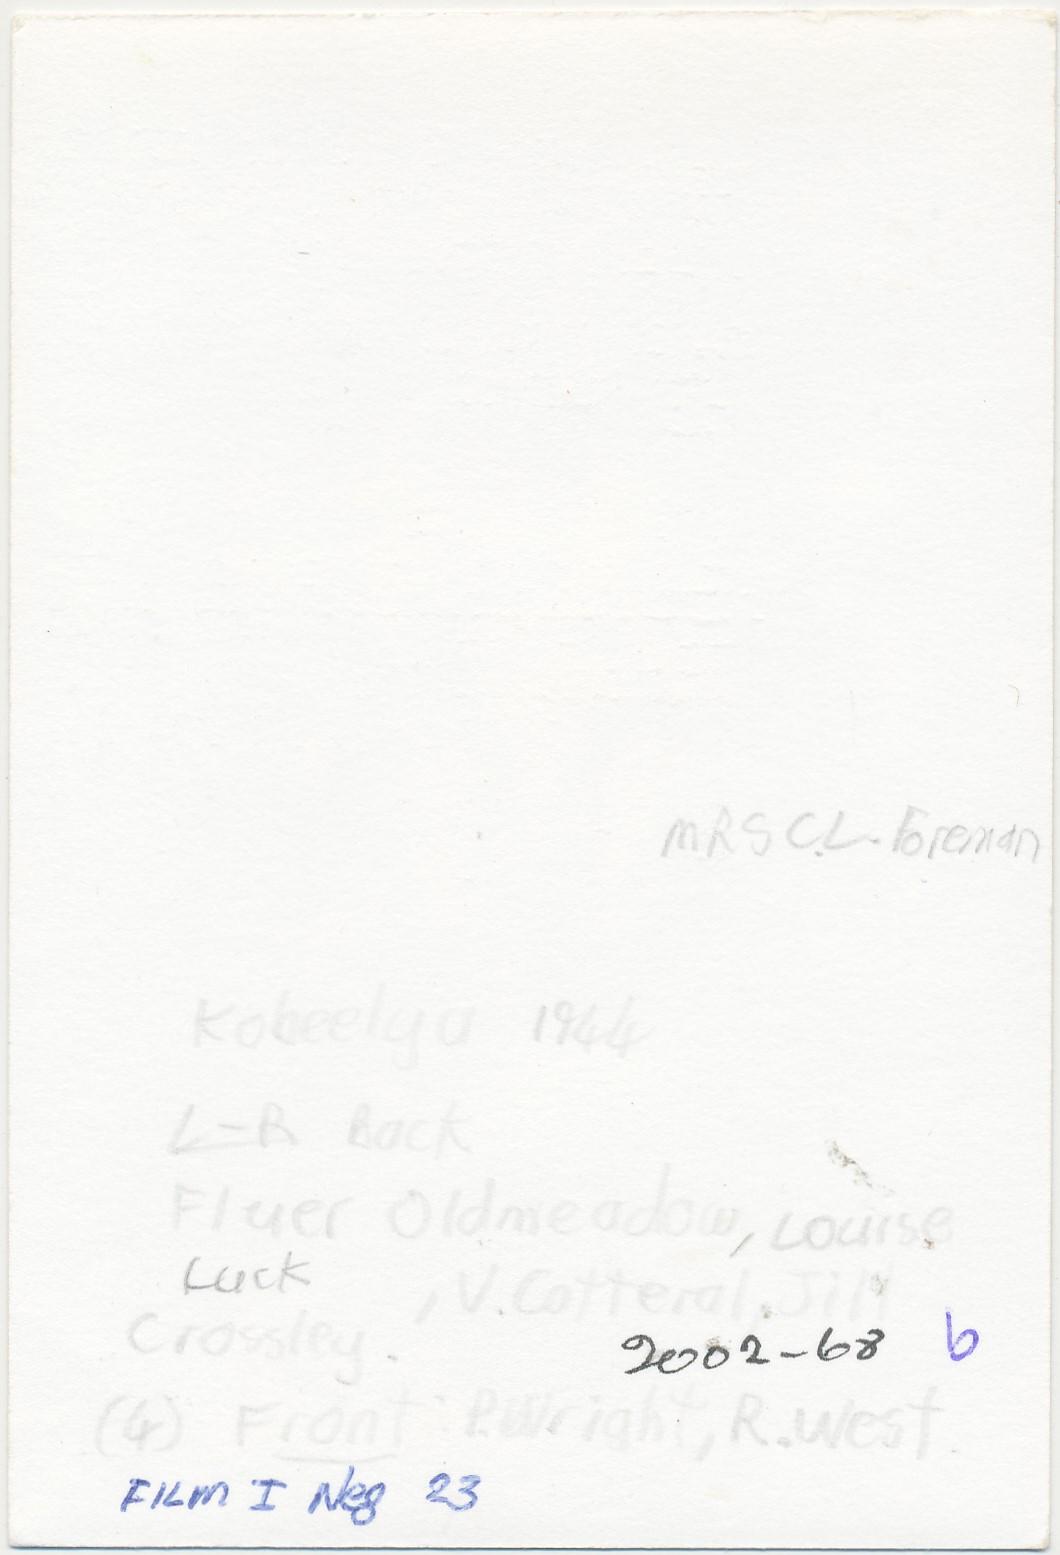 MRS C.L. Foreman
Kobeelya 1944
L-R Back
Fluer Oldmeadow, Louise
Luck , V. Cotteral, Jill
Crossley.
2002-68 b
(4) Front: P. Wright, R. West.
FILM I Neg 23